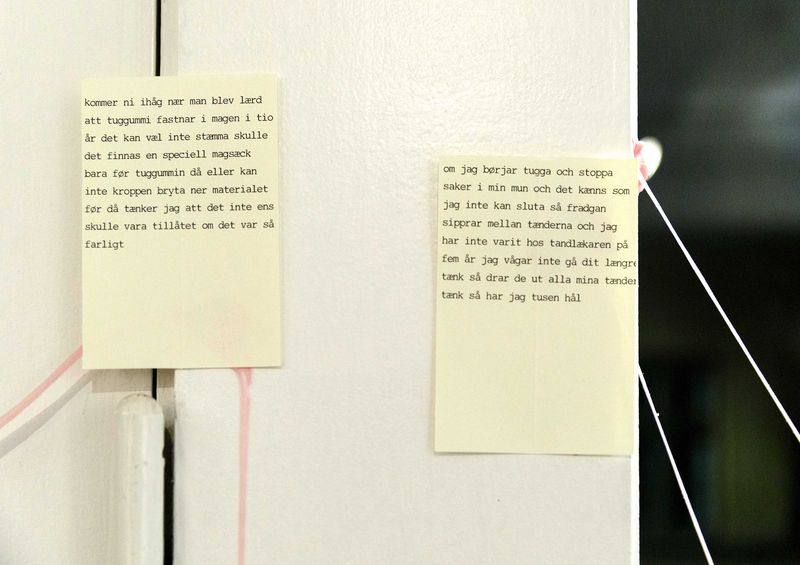 kommer ni ihåg nær man blev lærd
att tuggummi fastnar i magen i tio
år det kan væl inte stæmma skulle
det finnas en speciell magsæck
bara før tuggummin då eller kan
inte kroppen bryta ner materialet
før då tænker jag att det inte ens
skulle vara tillåtet om det var så
farligt
om jag børjar tugga och stoppa
saker i min mun och det kænns som
jag inte kan sluta så fradgan
sipprar mellan tænderna och jag
har inte varit hos tandlækaren på
fem år jag vågar inte gå dit længre
tænk så drar de ut alla mina tænder
tænk så har jag tusen hål